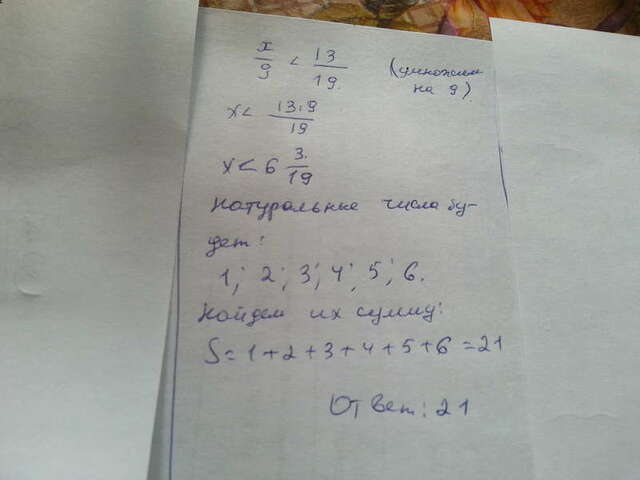 x/9 < 13/19. (умножим
на 9)
x < 13·9/19
x < 6 3/19
Натуральные числа бу-
дет:
1; 2; 3; 4; 5; 6.
Найдем их сумму:
S = 1 + 2 + 3 + 4 + 5 + 6 = 21
Ответ: 21